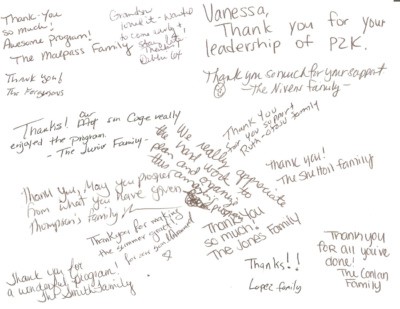 Thank-You
so much!
Awesome Program!
The Malpass Family
Thank You!
The
Grandson
loved it - wanted
to come early &
stay late!
Vanessa,
Thank you for your
leadership of P2K.
Thank you so much for your support
- The Nivens family -
Thanks! Our
son Cage really
enjoyed the program.
- The Junior Family -
We really appreciate
the hard work to
plan and organize
this
program
Thank You
for your support
Ruth family
Thank you!
The Shelton family
Thank you, May you
from what you have given
Thompson's Family
Thank you for working
the summer
for our
Thank you
so much!
The Jones Family
Thank you for
a wonderful program!
The Smith family
Thanks!!
Lopez family
Thank you
for all you've
done!
The Conlan
Family